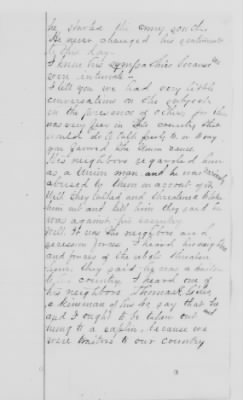 he
He never changed his sentiments
to this day.
I knew his sympathies because we
were intimate.
I tell you we had very little
conversations on the subject
in the presence of others, for there
was very few in this country that
would do to talk freely to in
you favored the Union cause.
His neighbors regarded him
as a Union man and he was
abused by them on account of it
Yes. They called and threatened to take
him out and tell him they said he
was against his country
Well. It was the neighbors and
secession forces. I heard his neighbors
and forces of the rebels threaten
him, they said he was a traitor
to his country. I heard one of
his neighbors Thomas
a kinsman of his say that he
and I ought to be taken out and
hung to a saplin, because we
were traitors to our country